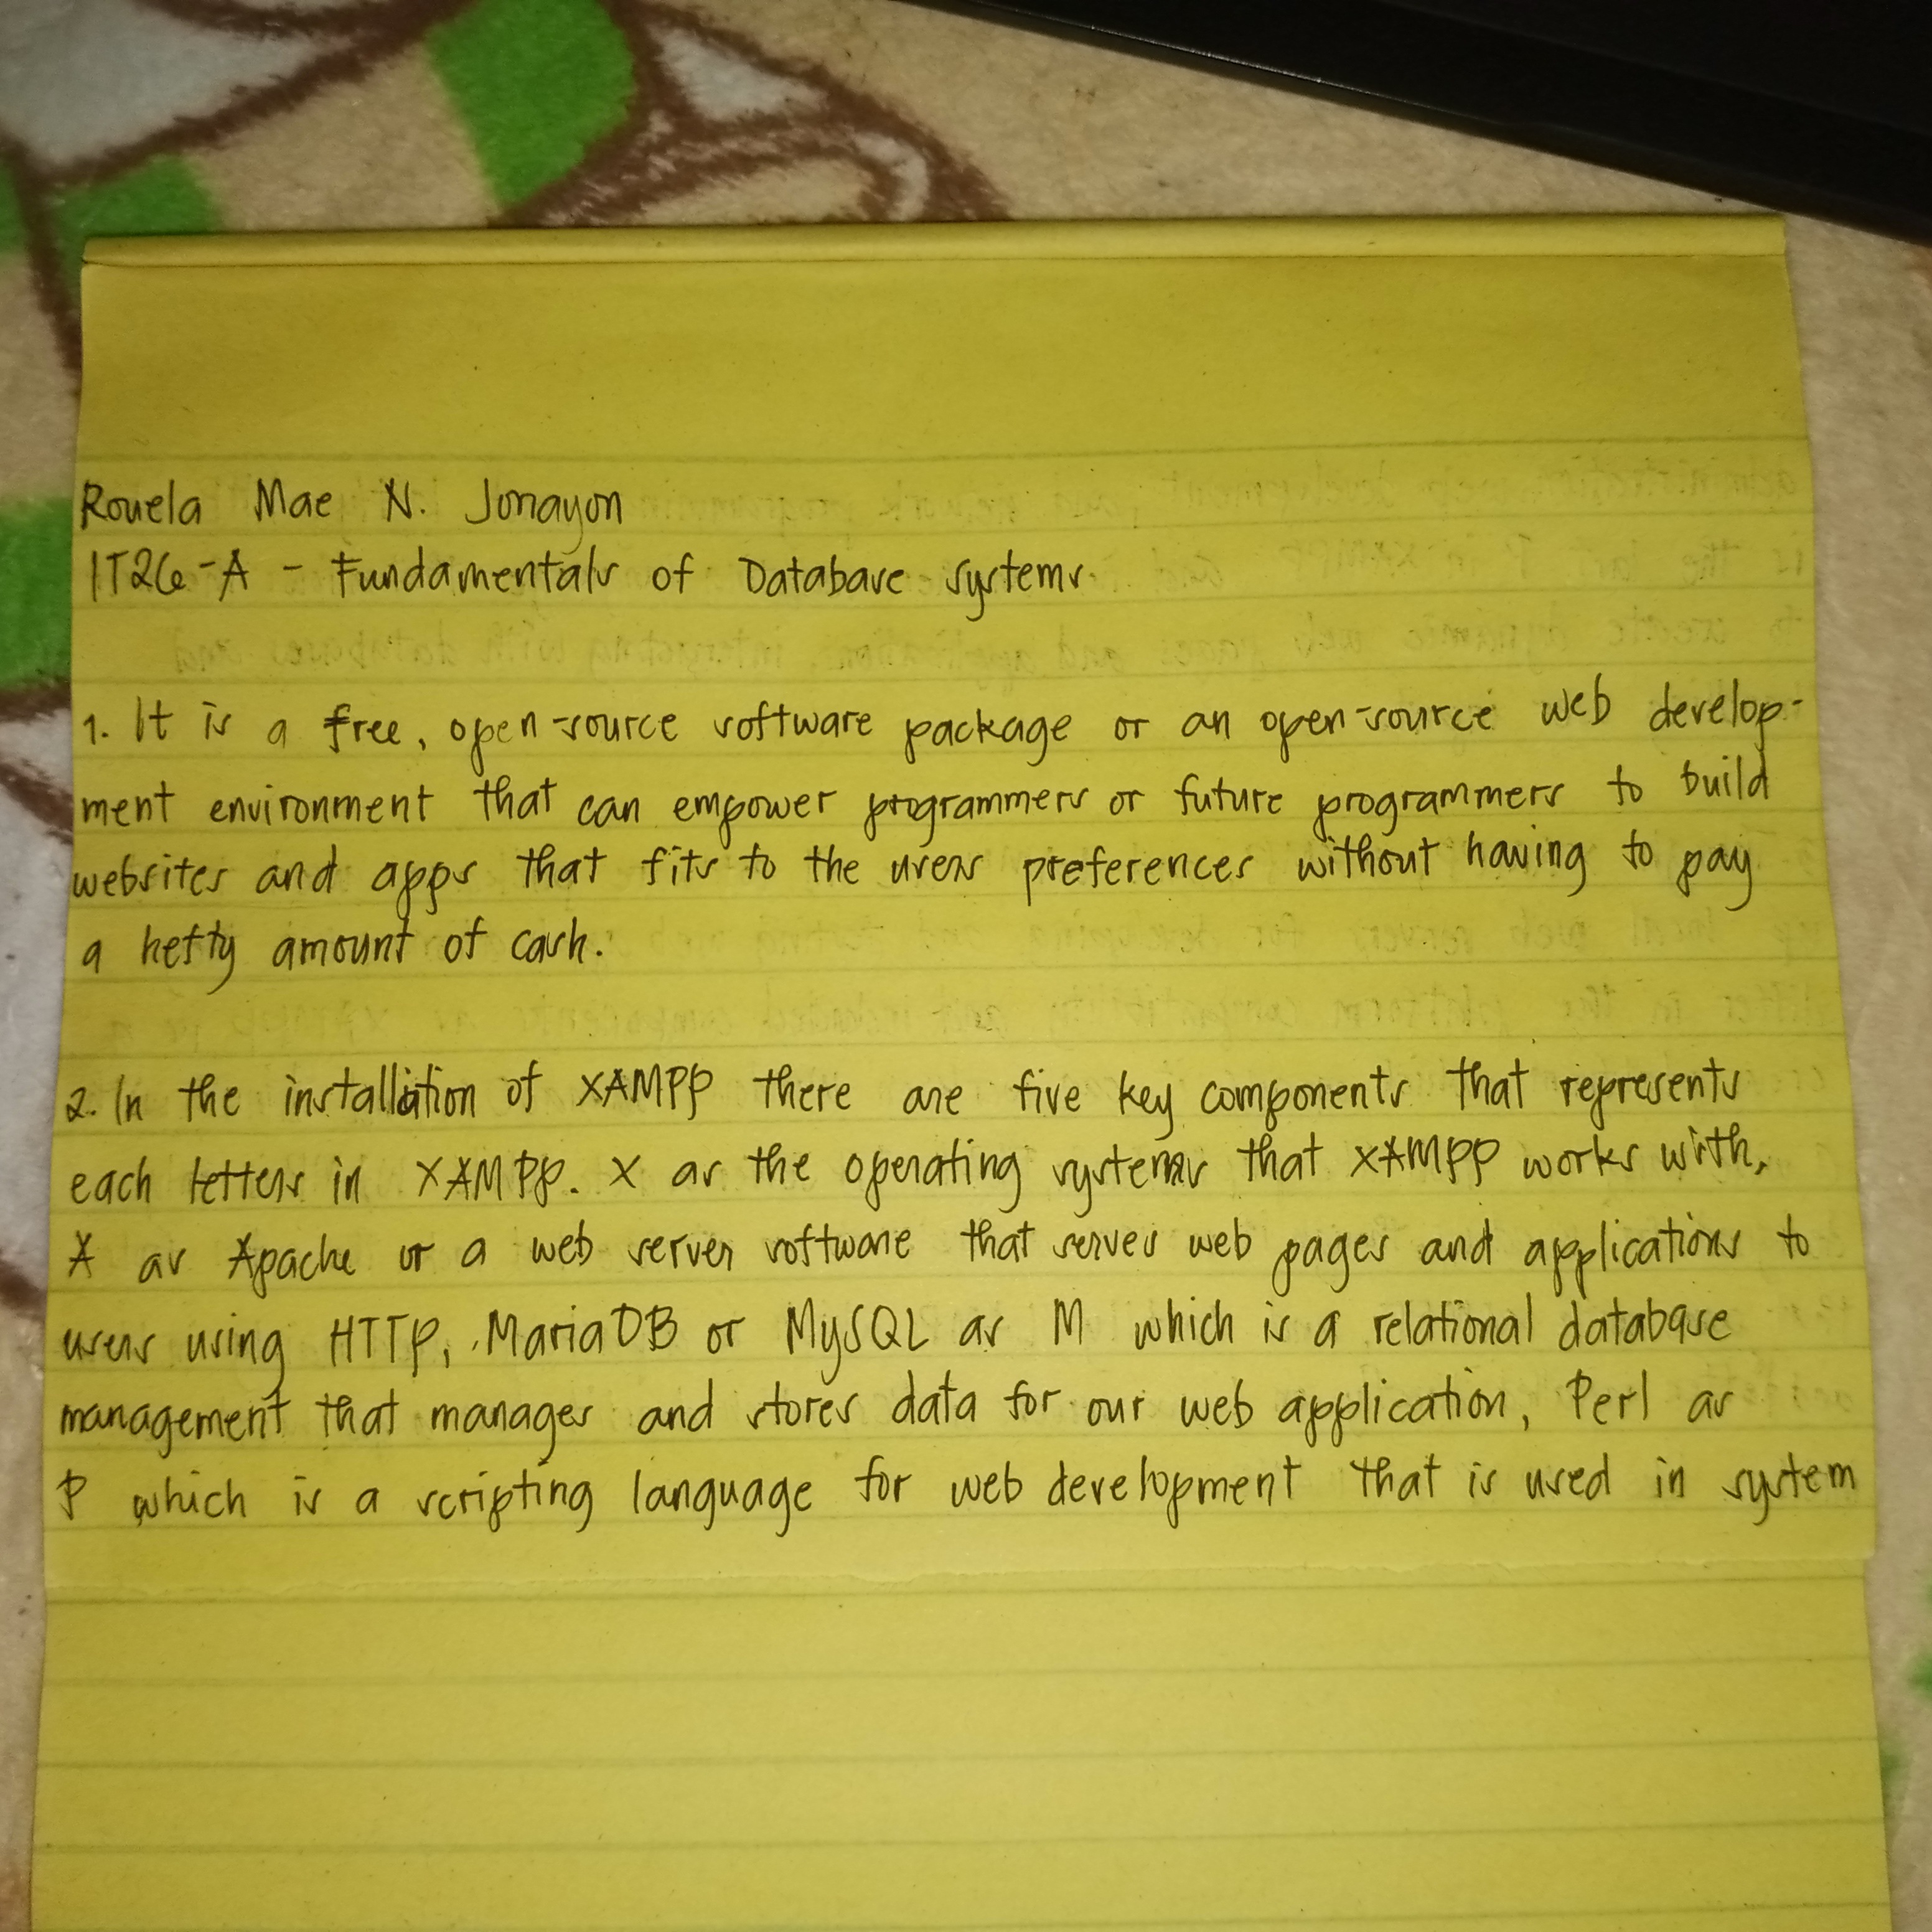 Rouela Mae N. Jonayon
IT26-A - Fundamentals of Database Systems.
1. It is a free, open-source software package or an open-source web develop-
ment environment that can empower programmers or future programmers to build
websites and apps that fits to the users preferences without having to pay
a hefty amount of cash.
2. In the installation of XAMPP there are five key components that represents
each letters in XAMPP. X as the operating systems that XAMPP works with,
A as Apache or a web server software that serves web pages and applications to
users using HTTP, MariaDB or MySQL as M which is a relational database
management that manages and stores data for our web application, Perl as
P which is a scripting language for web development that is used in system